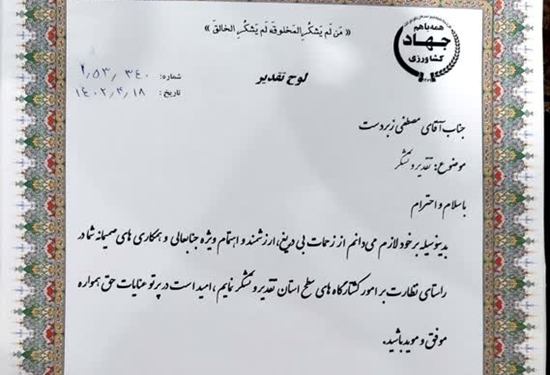 همه باهم
جهاد
کشاورزی
« مَن لَم یَشکُرِ المَخلوق لَم یَشکُرِ الخالِق »
لوح تقدیر
شماره: ۲,۵۳, ۳۴۰
تاریخ: ۱۴۰۲,۴,۱۸
جناب آقای مصطفی زبردست
موضوع: تقدیر و تشکر
با سلام و احترام
بدینوسیله بر خود لازم می‌دانم از زحمات بی دریغ، ارزشمند و اهتمام ویژه جنابعالی و همکاری های صمیمانه شما در
راستای نظارت بر امور کشتارگاه های سطح استان تقدیر و تشکر نمایم، امید است در پرتو عنایات حق همواره
موفق و موید باشید.